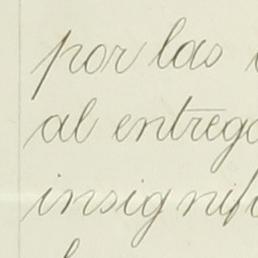 por las
al entrega
insignifi